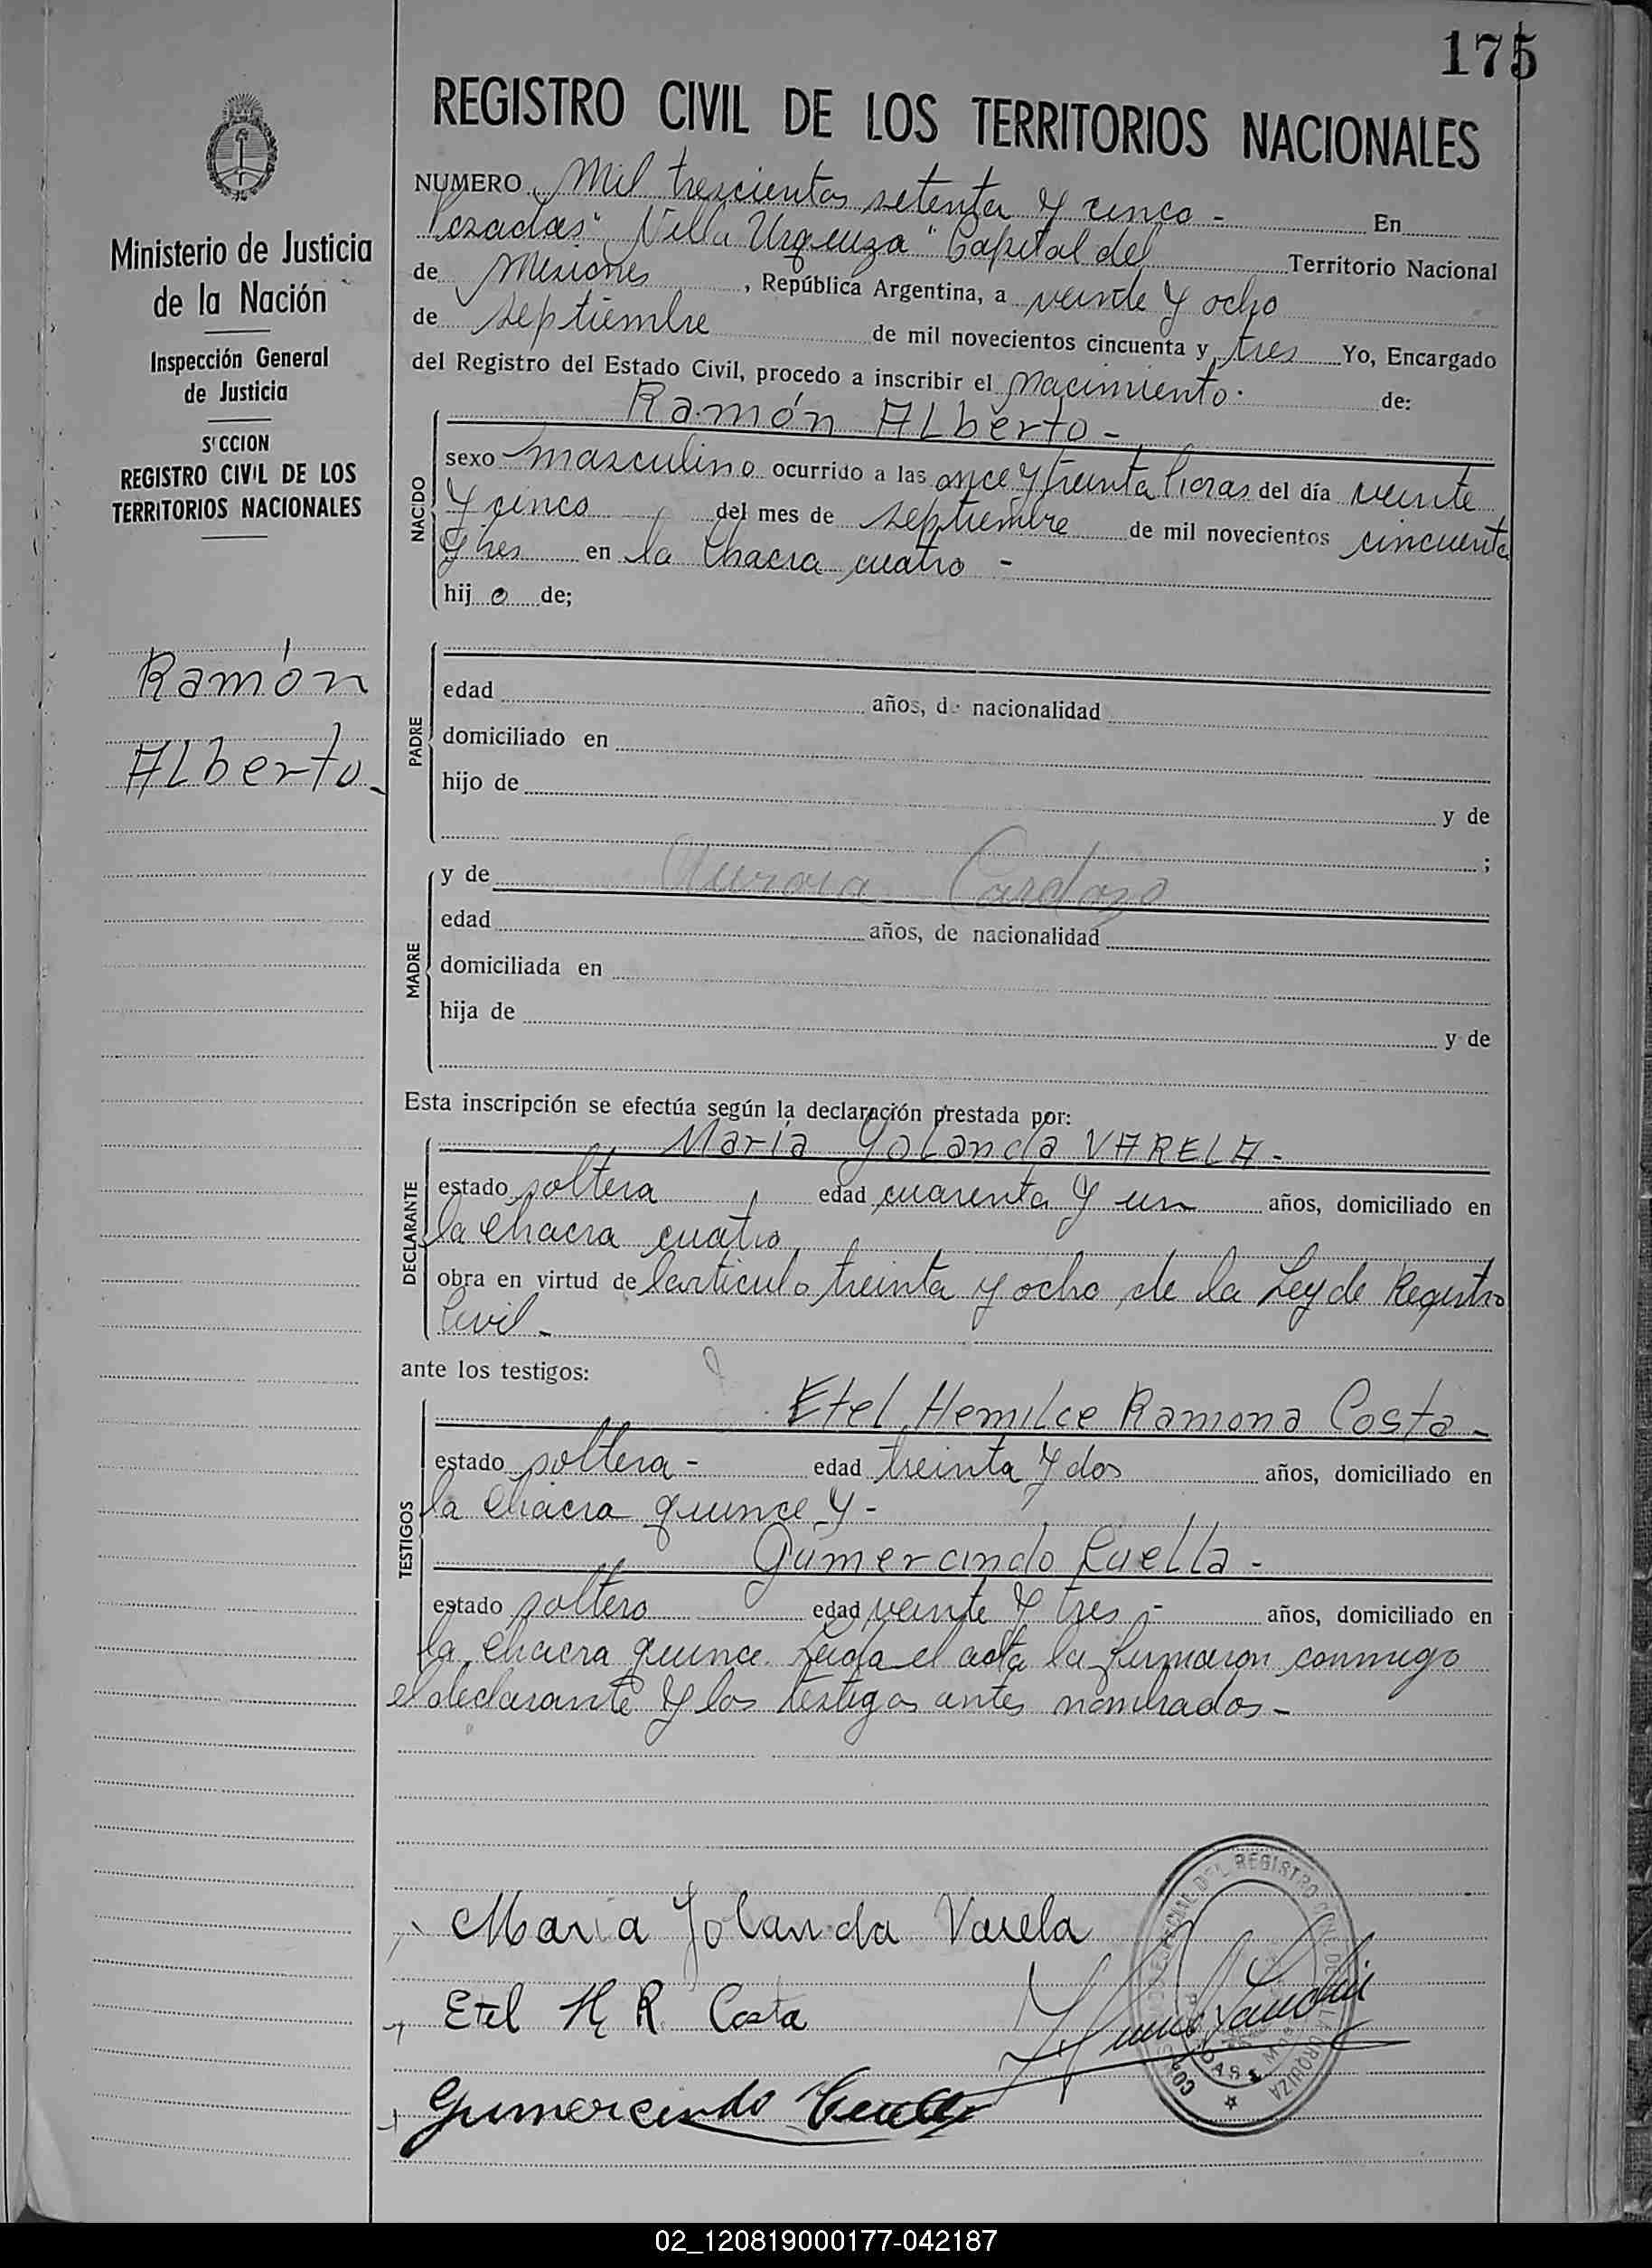 175
REGISTRO CIVIL DE LOS TERRITORIOS NACIONALES
Ministerio de Justicia
de la Nación
Inspección General
de Justicia
S'CCION
REGISTRO CIVIL DE LOS
TERRITORIOS NACIONALES
Ramón
Alberto-
NUMERO Mil trescientos setenta y cinco - En
Posadas "Villa Urquiza" Capital del Territorio Nacional
de Misiones, República Argentina, a veinte y ocho
de septiembre de mil novecientos cincuenta y tres Yo, Encargado
del Registro del Estado Civil, procedo a inscribir el nacimiento. de:
Ramón ALberto-
NACIDO
sexo masculino ocurrido a las once y treinta horas del día veinte
y cinco del mes de septiembre de mil novecientos cincuenta
y tres en la chacra cuatro -
hij o de;
PADRE
edad años, de nacionalidad
domiciliado en
hijo de y de
;
MADRE
y de Aurora Cardozo
edad años, de nacionalidad
domiciliada en
hija de y de
Esta inscripción se efectúa según la declaración prestada por:
DECLARANTE
María YoLanda VARELA-
estado soltera edad cuarenta y un años, domiciliado en
la chacra cuatro
obra en virtud de l'articulo treinta y ocho de la Ley de Registro
Civil-
ante los testigos:
TESTIGOS
Etel HemiLce Ramona Costa-
estado soltera- edad treinta y dos años, domiciliado en
la chacra quince y-
Gumercindo -
estado soltero edad veinte y tres - años, domiciliado en
la chacra quince. Leida el acta la firmaron conmigo
el declarante y los testigos antes nombrados-
Maria Yolanda Varela
Etel H. R. Costa
Gumercindo
02_120819000177-042187